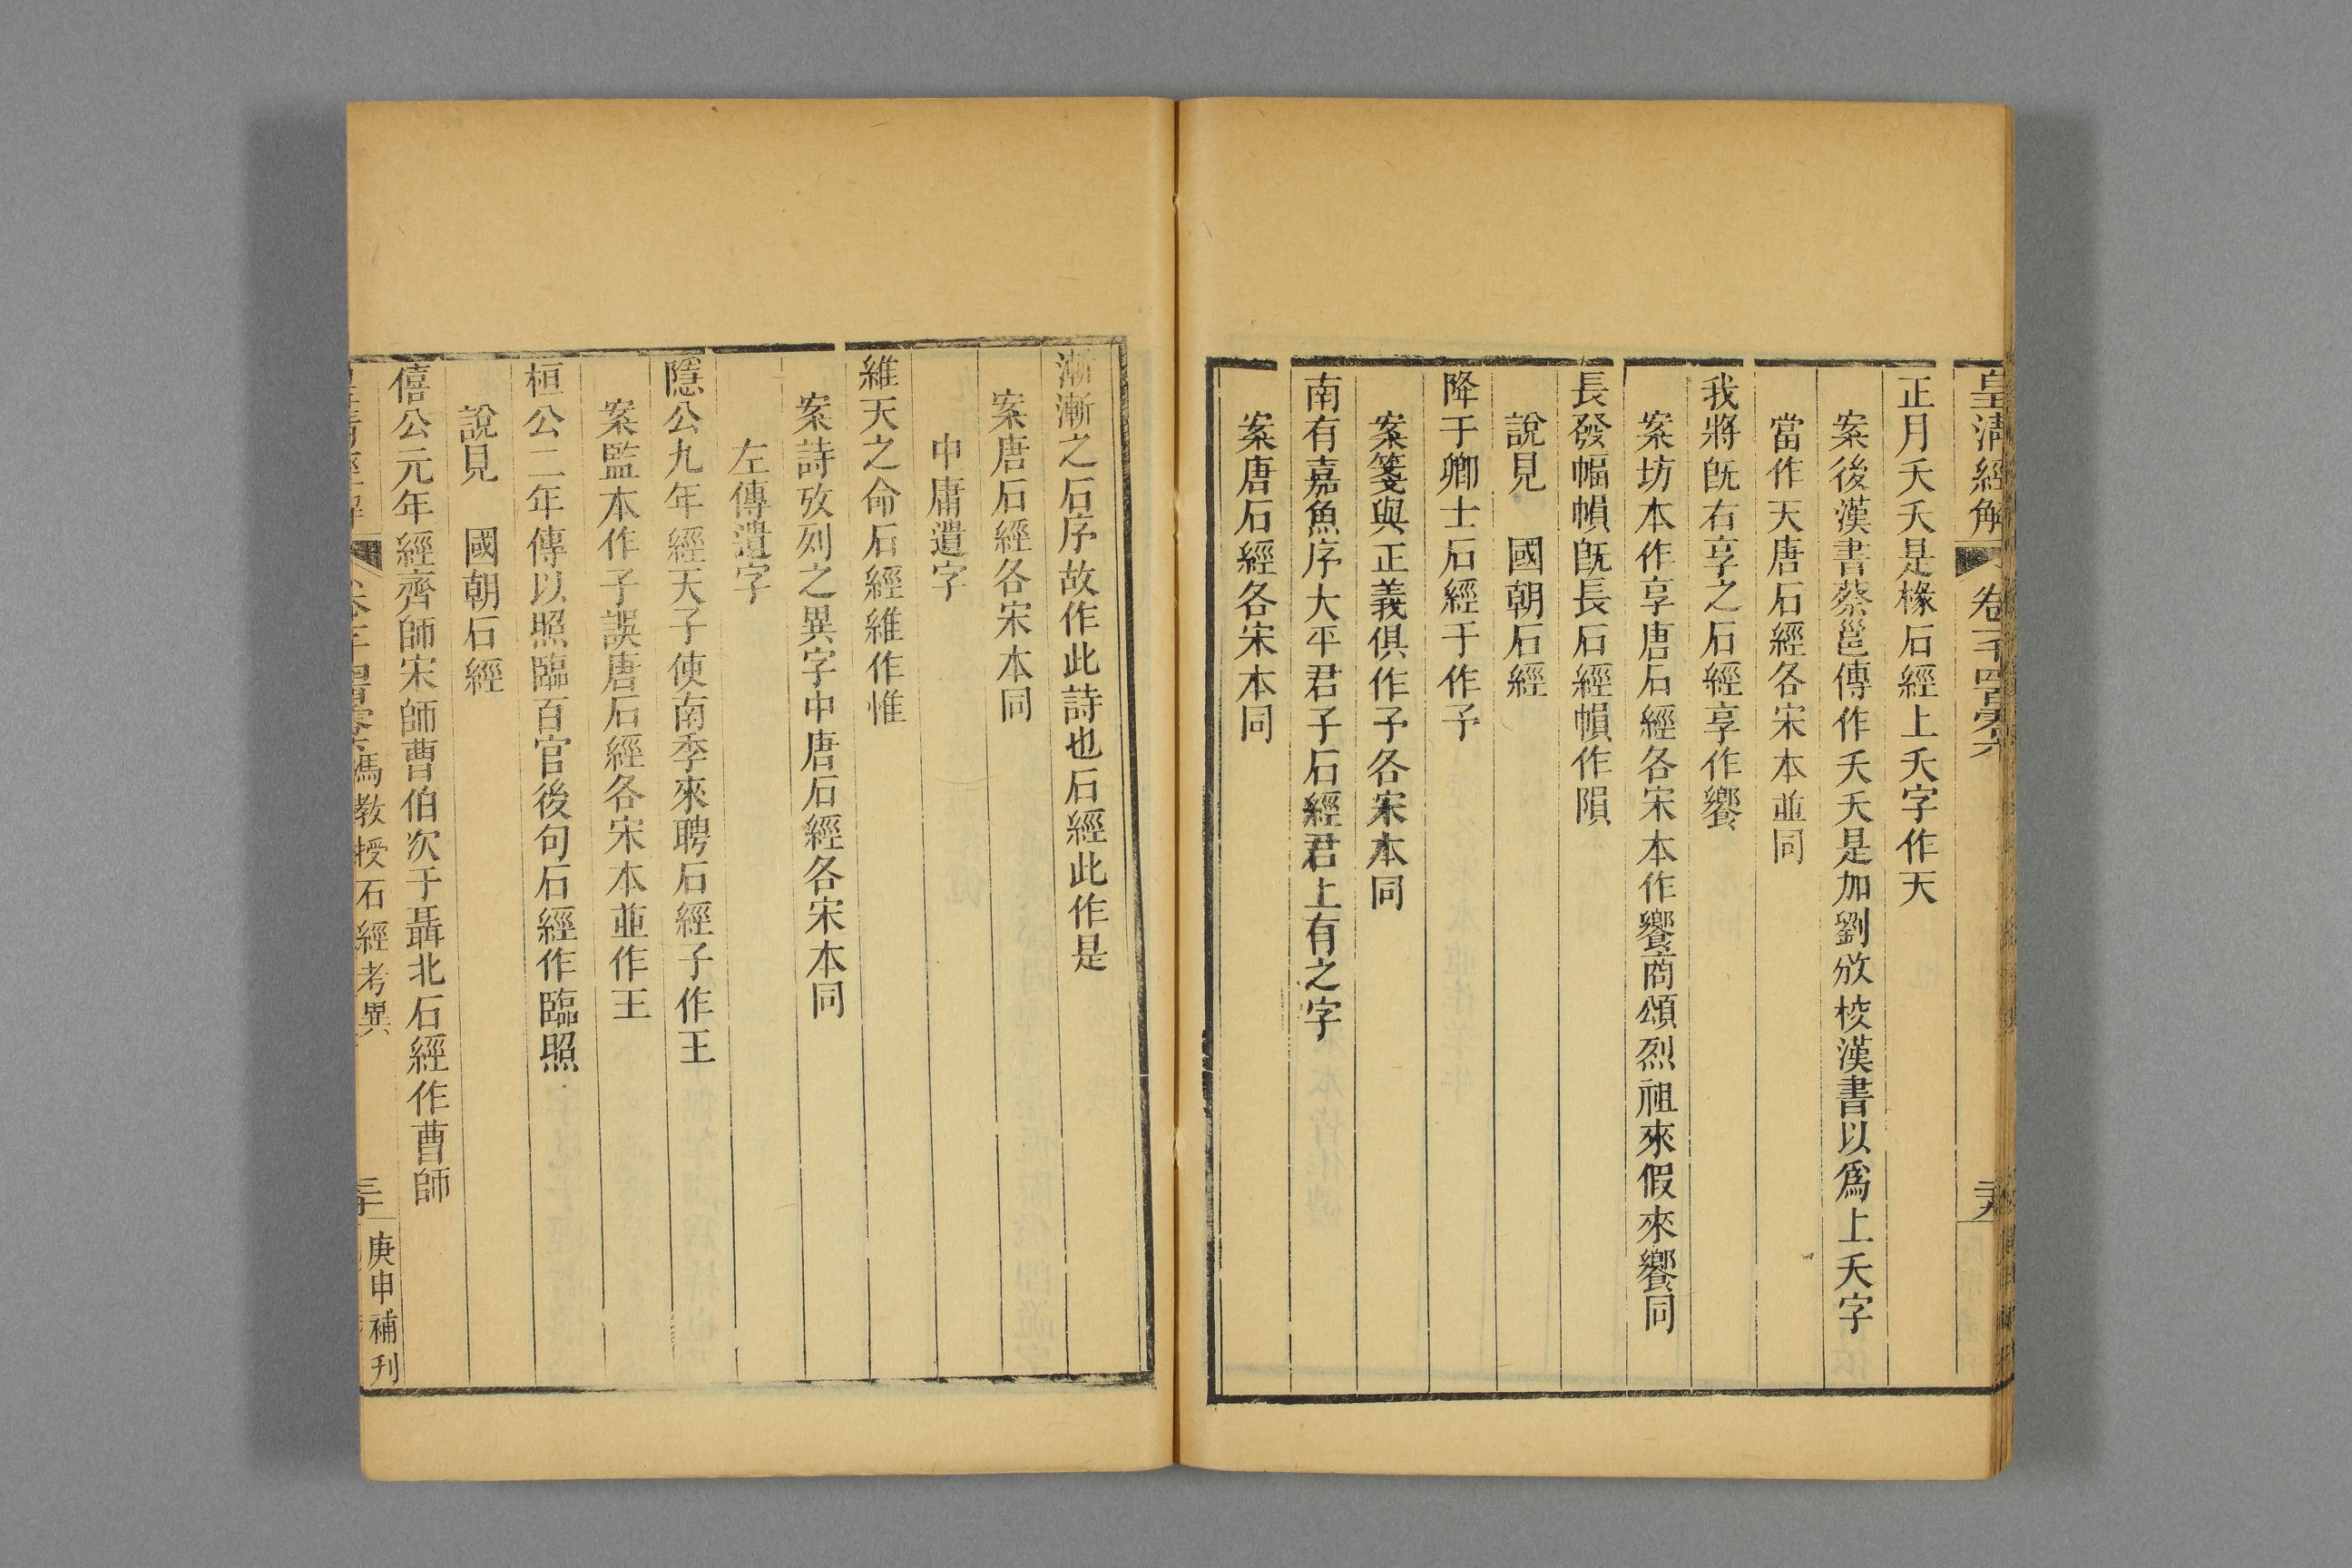 皇清經解 卷一千四百零六 二十九
正月夭夭是椓石經上夭字作天
案後漢書蔡邕傳作夭夭是加劉攽校漢書以爲上夭字
當作天唐石經各宋本並同
我將旣右享之石經享作饗
案坊本作享唐石經各宋本作饗商頌烈祖來假來饗同
長發幅幁旣長石經幁作隕
說見　國朝石經
降于卿士石經于作予
案箋與正義俱作予各宋本同
南有嘉魚序大平君子石經君上有之字
案唐石經各宋本同
漸漸之石序故作此詩也石經此作是
案唐石經各宋本同
中庸遺字
維天之命石經維作惟
案詩攷列之異字中唐石經各宋本同
左傳遺字
隱公九年經天子使南季來聘石經子作王
案監本作子誤唐石經各宋本並作王
桓公二年傳以照臨百官後句石經作臨照
說見　國朝石經
僖公元年經齊師宋師曹伯次于聶北石經作曹師
皇清經解 卷一千四百零六 馮教授石經考異 三十 庚申補刊